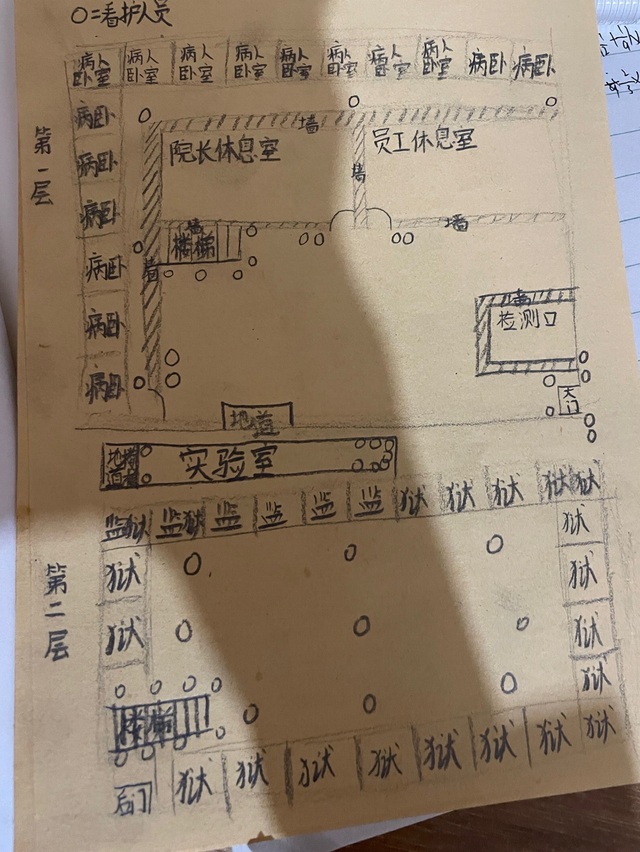 ○=看护人员
病人卧室 病人卧室 病人卧室 病人卧室 病人卧室 病人卧室 病人卧室 病人卧室 病卧 病卧
第一层
病卧
病卧
病卧
病卧
病卧
病卧
墙
院长休息室
员工休息室
墙
墙
楼梯
墙
墙
墙
检测口
大门
地道
地道
楼梯
实验室
第二层
监狱 监狱 监 监 监 监 狱 狱 狱 狱 狱
狱 狱
狱 狱
狱 狱
狱
楼梯
后门 狱 狱 狱 狱 狱 狱 狱 狱